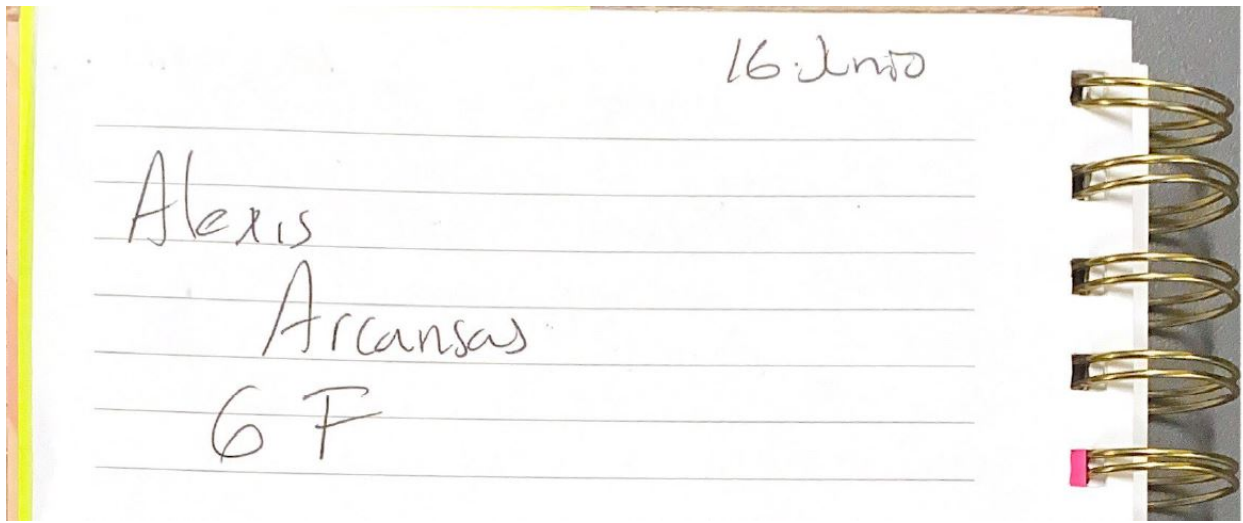 16 Junio
Alexis
Arcansas
6 F